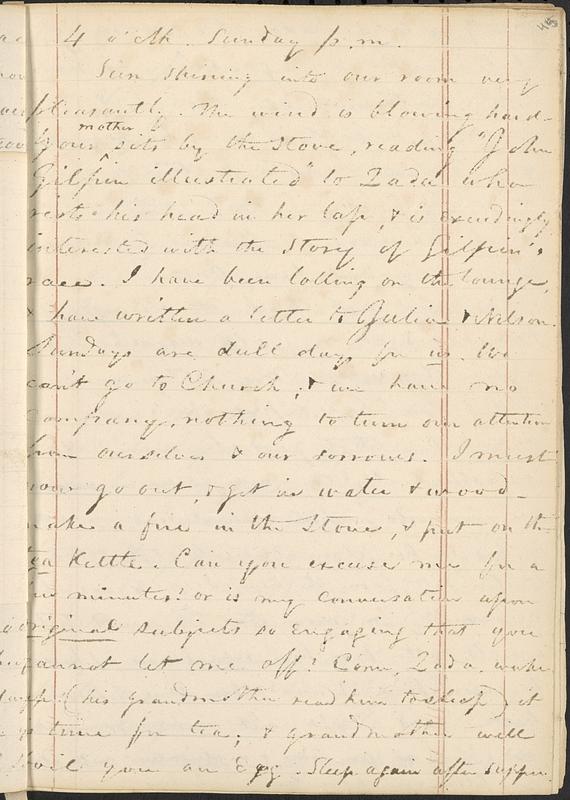 45
4 o'clk. Sunday p.m.
Sun shining into our room very
pleasantly. The wind is blowing hard-
Your mother sits by the stove, reading "John
Gilpin illustrated" to Zada who
rests his head in her lap, & is exceedingly
interested with the story of Gilpin's
race. I have been lolling on the lounge,
& have written a letter to Julia & Nelson.
Sundays are dull days for us. We
can't go to Church, & we have no
company, nothing to turn our attention
from ourselves & our sorrows. I must
now go out, & get in water & wood-
make a fire in the Stove, & put on the
tea Kettle. Can you excuse me for a
few minutes? or is my conversation upon
original subjects so engaging that you
cannot let me off? Come, Zada, wake
(his grandmother read him to sleep) it
is time for tea; & grandmother will
boil you an egg. Sleep again after supper.